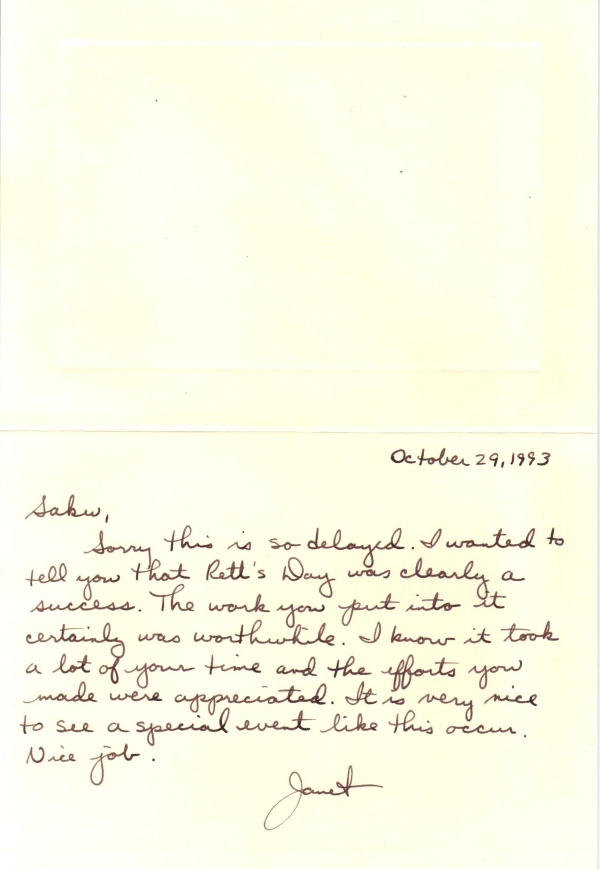 October 29, 1993
Saku,
Sorry this is so delayed. I wanted to
tell you that Rett's Day was clearly a
success. The work you put into it
certainly was worthwhile. I know it took
a lot of your time and the efforts you
made were appreciated. It is very nice
to see a special event like this occur.
Nice job.
Janet